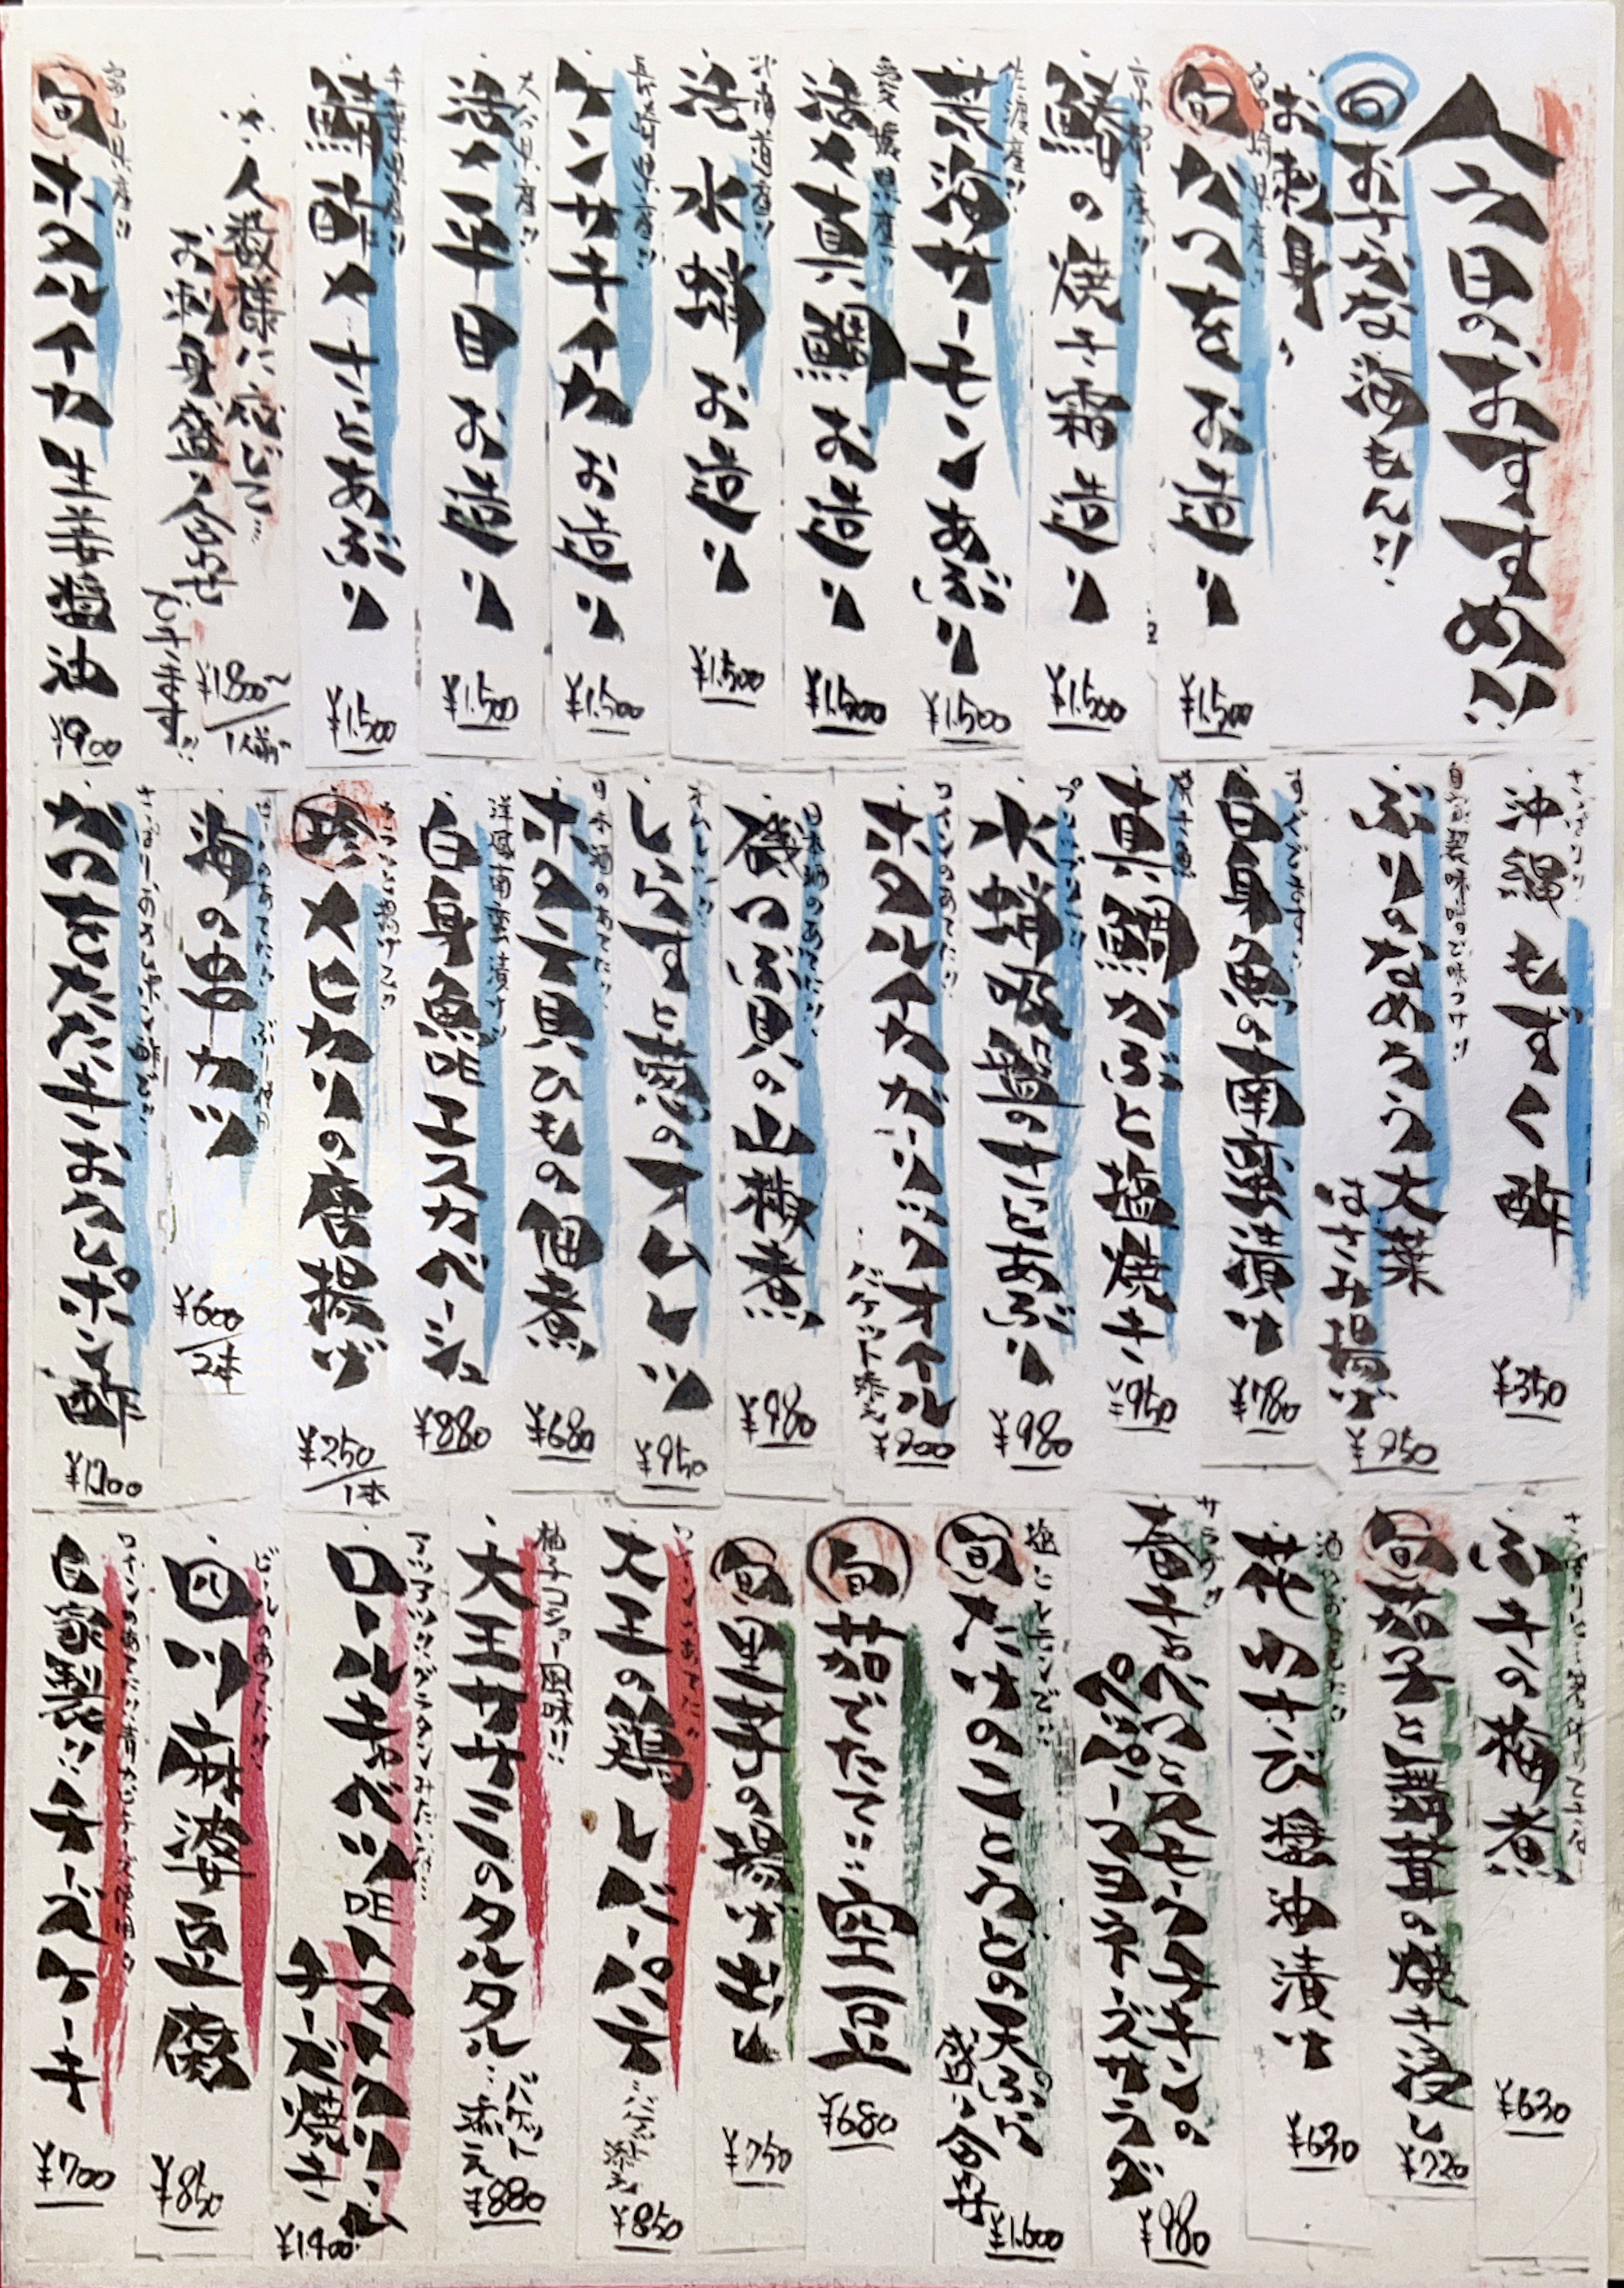 今日のおすすめ!!
旬 おさかな海もん!!
お刺身
旬 かつをお造り
¥1.500
鰆の焼き霜造り
¥1.500
佐渡産!!
荒海サーモンあぶり
¥1.500
愛媛県産!!
活〆真鯛お造り
¥1.500
北海道産!!
活 水蛸 お造り
¥1.500
長崎県産!!
ケンサキイカお造り
¥1.500
大分県産!!
活〆平目お造り
¥1.500
千葉県産!!
鯖酢〆さしとあぶり
¥1.500
人数様に応じて…
お刺身盛り合わせ
できます!!
¥1.800〜/1人前
富山県産!!
旬 ホタルイカ生姜醤油
¥900
さっぱり!!
沖縄もずく酢
¥350
自家製味噌で味つけ!!
ぶりのなめろう大葉
はさみ揚げ
¥950
白身魚の南蛮漬け
¥780
焼き魚
真鯛かぶと塩焼き
¥950
水蛸吸盤のさしとあぶり
¥980
ワインのあてに!!
ホタルイカガーリックオイル
バケット添え
¥900
日本酒のあてに!!
磯つぶ貝の山椒煮
¥980
しらすと葱のオムレツ
¥950
日本酒のあてに!!
ホタテ貝ひもの佃煮
¥680
洋風南蛮漬け!!
白身魚DEエスカベーシュ
¥880
カラッと揚げてマス
珍 メヒカリの唐揚げ
¥250/1本
海の串カツ
¥600/2本
かつをたたきおろしポン酢
¥1.200
ふきの梅煮
¥630
旬 茄子と舞茸の焼き浸し
¥720
酒のあてに!!
花わさび醤油漬け
¥630
春キャベツとスモークチキンの
ペッパーマヨネーズサラダ
¥980
旬 たけのことうどの天ぷら
盛り合わせ
¥1.600
旬 茹でたて!!空豆
¥680
旬 里芋の揚げ出し
¥750
ワインのあてに!!
大王の鶏レバーパテ
バケット添え
¥850
柚子コショー風味!!
大王ササミのタルタル
バケット添え
¥880
ロールキャベツDEトマトクリーム
チーズ焼き
¥1.400
ビールのあてに!!
四川麻婆豆腐
¥850
自家製!!チーズケーキ
¥700